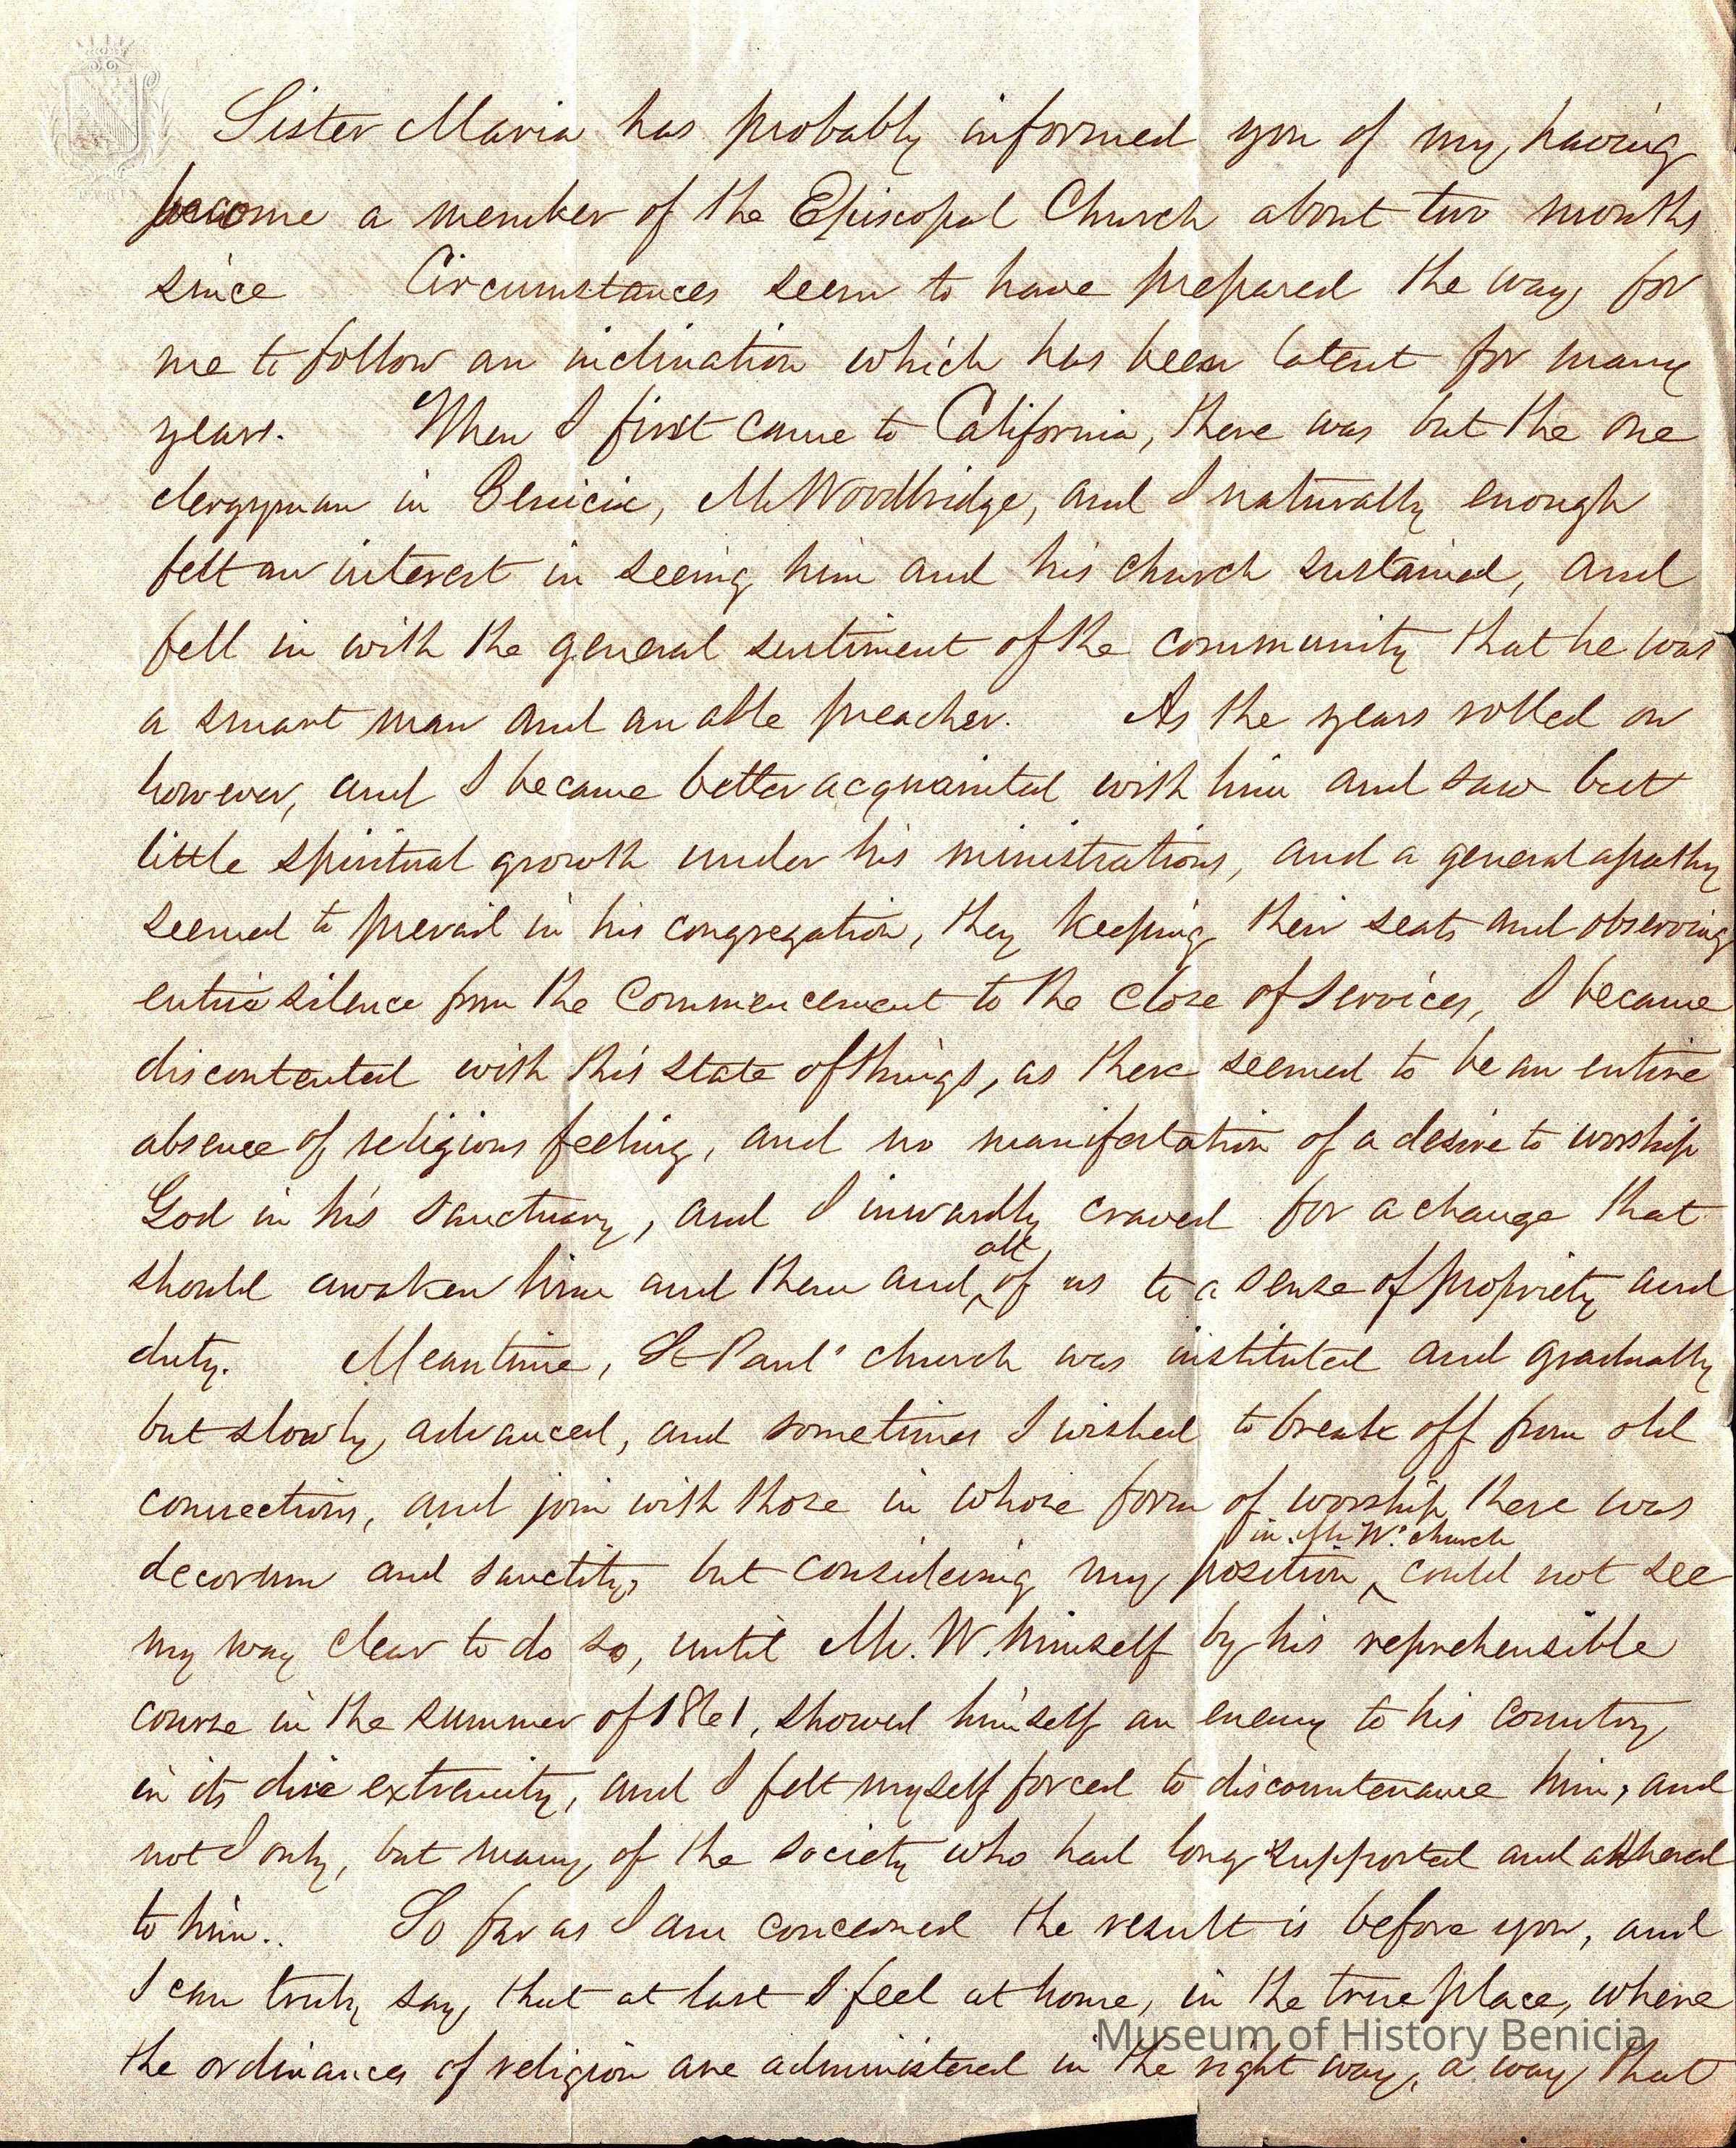 Sister Maria has probably informed you of my having
become a member of the Episcopal Church about two months
since Circumstances seem to have prepared the way for
me to follow an inclination which has been latent for many
years. When I first came to California, there was but the one
clergyman in Benicia, Mr Woodbridge, and I naturally enough
felt an interest in seeing him and his church sustained, and
fell in with the general sentiment of the community that he was
a smart man and an able preacher. As the years rolled on
however, and I became better acquainted with him and saw but
little spiritual growth under his ministrations, and a general apathy
seemed to prevail in his congregation, they keeping their seats and observing
entire silence from the commencement to the close of services, I became
discontented with this state of things, as there seemed to be an entire
absence of religious feeling, and no manifestation of a desire to worship
God in his sanctuary, and I inwardly craved for a change that
should awaken him and them and all of us to a sense of propriety and
duty. Meantime, St Paul' church was instituted and gradually
but slowly advanced, and sometimes I wished to break off from old
connections, and join with those in whose form of worship there was
decorum and sanctity, but considering my position in Mr. W.' church could not see
my way clear to do so, until Mr. W. himself by his reprehensible
course in the summer of 1861, showed himself an enemy to his country
in its dire extremity, and I felt myself forced to discountenance him, and
not I only, but many of the society who had long supported and adhered
to him.. So far as I am concerned the result is before you, and
I can truly say, that at last I feel at home, in the true place, where
the ordinances of religion are administered in the right way, a way that
Museum of History Benicia